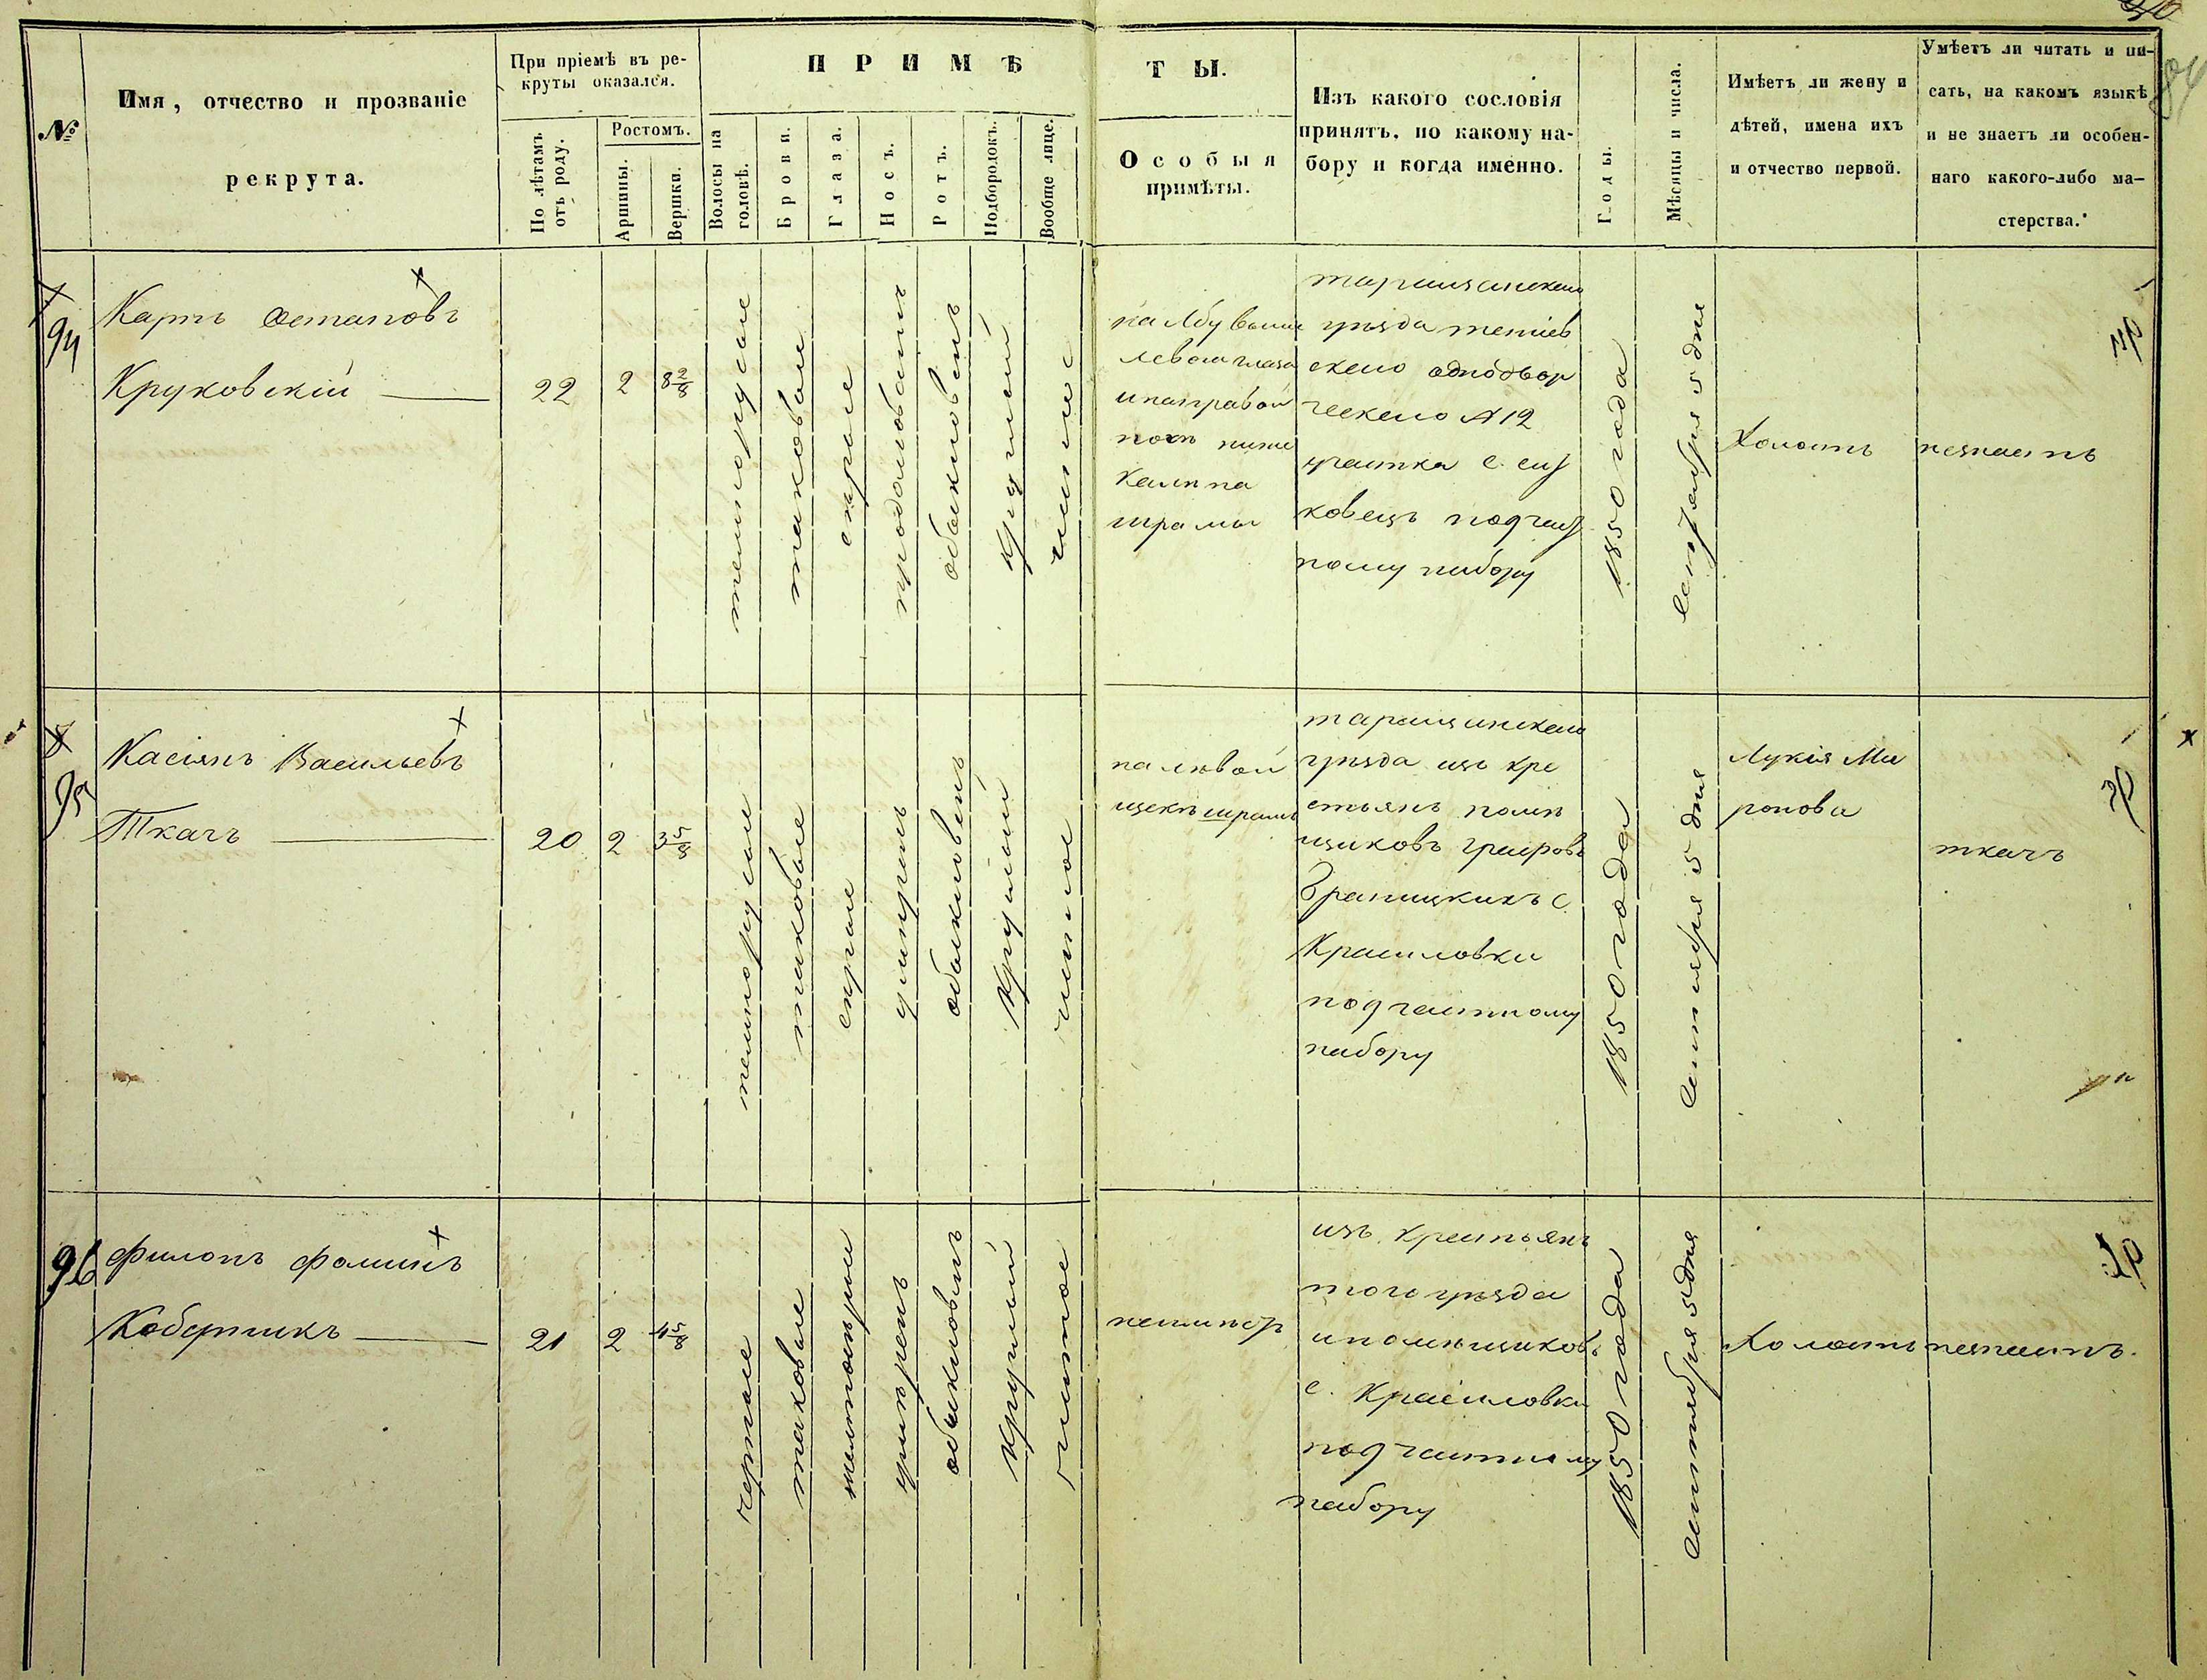 №
Имя, отчество и прозваніе
рекрута.
При пріемѣ въ ре-
круты оказался.
По лѣтамъ
отъ роду.
Ростомъ.
Аршины.
Вершки.
ПРИМѢ
Волосы на
головѣ.
Брови.
Глаза.
Носъ.
Ротъ.
Подбородокъ.
Вообще лице.
ТЫ.
Особыя
примѣты.
Изъ какого сословія
принятъ, по какому на-
бору и когда именно.
Годы.
Мѣсяцы и числа.
Имѣетъ ли жену и
дѣтей, имена ихъ
и отчество первой.
Умѣетъ ли читать и пи-
сать, на какомъ языкѣ
и не знаетъ ли особен-
наго какого-либо ма-
стерства.
94
Карпъ Остаповъ
Круковскій
22
2
8 2/8
темнорусые
таковые
сѣрые
продолговатъ
обыкновенъ
круглый
чистое
на лбу выше
леваго глаза
и на правой
ногѣ ниже
колѣна
шрамы
таращанскаго
уѣзда тетіев
скаго однодвор
ческаго № 12
участка с.
ковецъ по част
ному набору
1850 года
сентября 5 дня
Холостъ
незнаетъ
95
Касіянъ Васильевъ
Ткачъ
20
2
3 5/8
темнорусые
таковые
сѣрые
умѣренъ
обыкновенъ
круглый
чистое
на лѣвой
щекѣ шрамъ
таращанскаго
уѣзда изъ кре
стьянъ помѣ
щиковъ графовъ
Браницкихъ с.
Красиловки
по частному
набору
1850 года
сентября 5 дня
Лукія Ми
ронова
ткачъ
96
Филонъ Фоминъ
Коберникъ
21
2
4 5/8
черные
таковые
желтосѣрые
умѣренъ
обыкновенъ
круглый
чистое
неимѣетъ
изъ крестьянъ
того уѣзда
и помѣщиковъ
с. Красиловки
по частному
набору
1850 года
сентября 5 дня
Холостъ
незнаетъ.